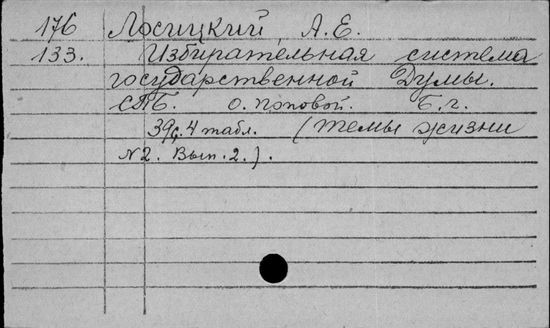 176 Лосицкий, А.Е.
133. Избирательная система
государственной Думы.
СПБ. О. Поповой. Б.г.
39с, 4 табл. (Темы жизни
N2. Вып. 2.).